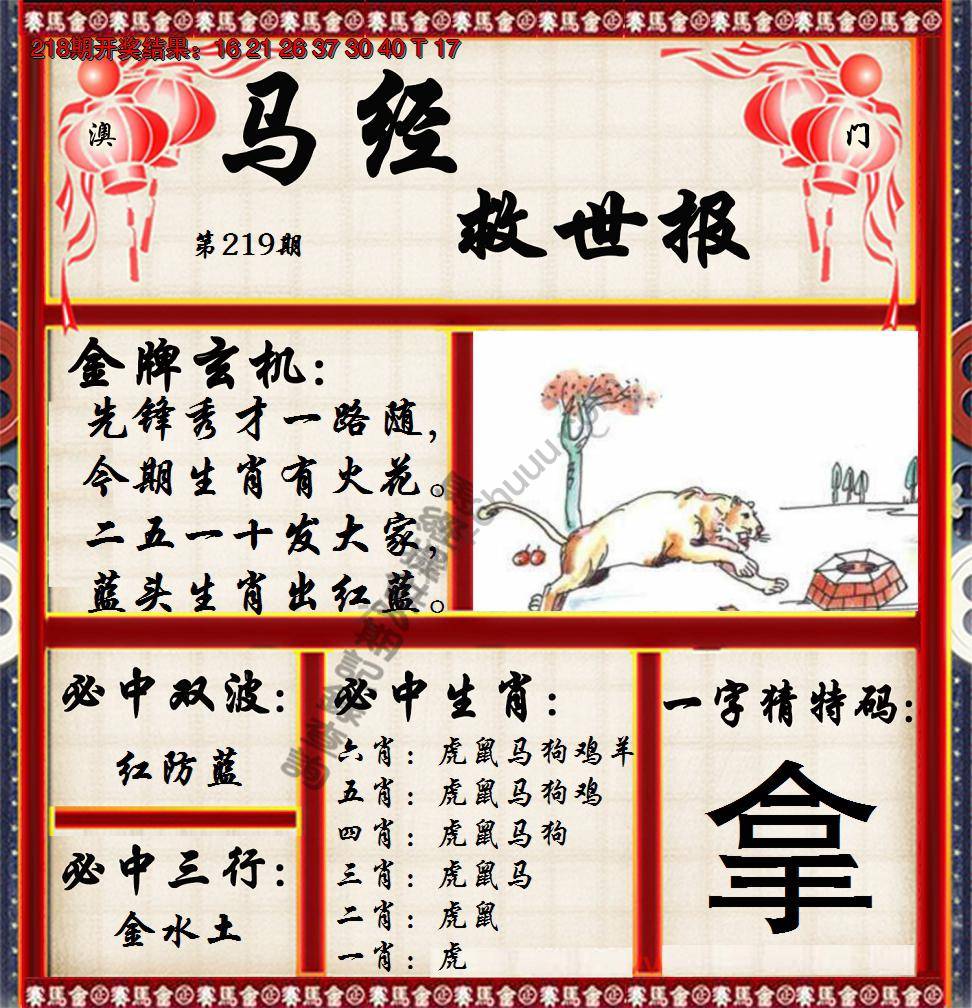 218期开奖结果：16 21 26 37 30 40 T 17
澳
门
马经
救世报
第219期
金牌玄机：
先锋秀才一路随，
今期生肖有火花。
二五一十发大家，
蓝头生肖出红蓝。
必中双波：
红防蓝
必中三行：
金水土
必中生肖：
六肖：虎鼠马狗鸡羊
五肖：虎鼠马狗鸡
四肖：虎鼠马狗
三肖：虎鼠马
二肖：虎鼠
一肖：虎
一字猜特码：
拿